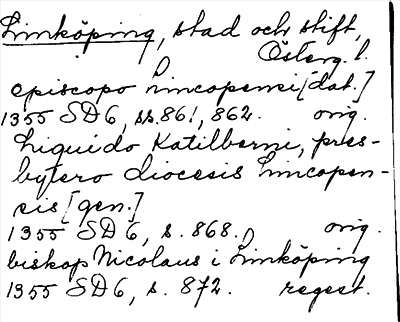 Linköping, stad och stift,
Österg. l.
episcopo Lincopensi [dat.]
1355 SD 6, ss. 861, 862. orig.
Liquido Katilberni, pres-
bytero diocesis Lincopen-
sis [gen.]
1355 SD 6, s. 868. orig.
biskop Nicolaus i Linköping
1355 SD 6, s. 872. regest.